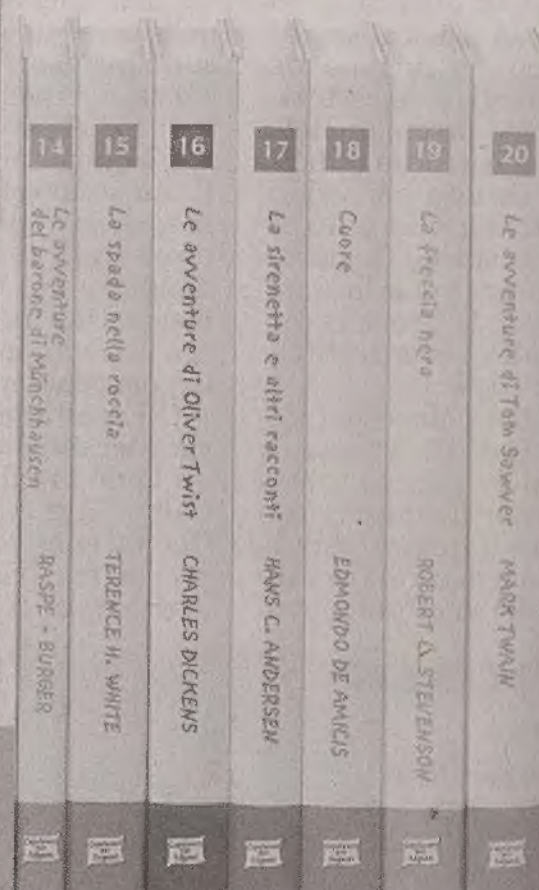 14
Le avventure
del barone di Münchhausen
RASPE - BURGER
15
La spada nella roccia
TERENCE H. WHITE
16
Le avventure di Oliver Twist
CHARLES DICKENS
17
La sirenetta e altri racconti
HANS C. ANDERSEN
18
Cuore
EDMONDO DE AMICIS
19
La freccia nera
ROBERT L. STEVENSON
20
Le avventure di Tom Sawyer
MARK TWAIN